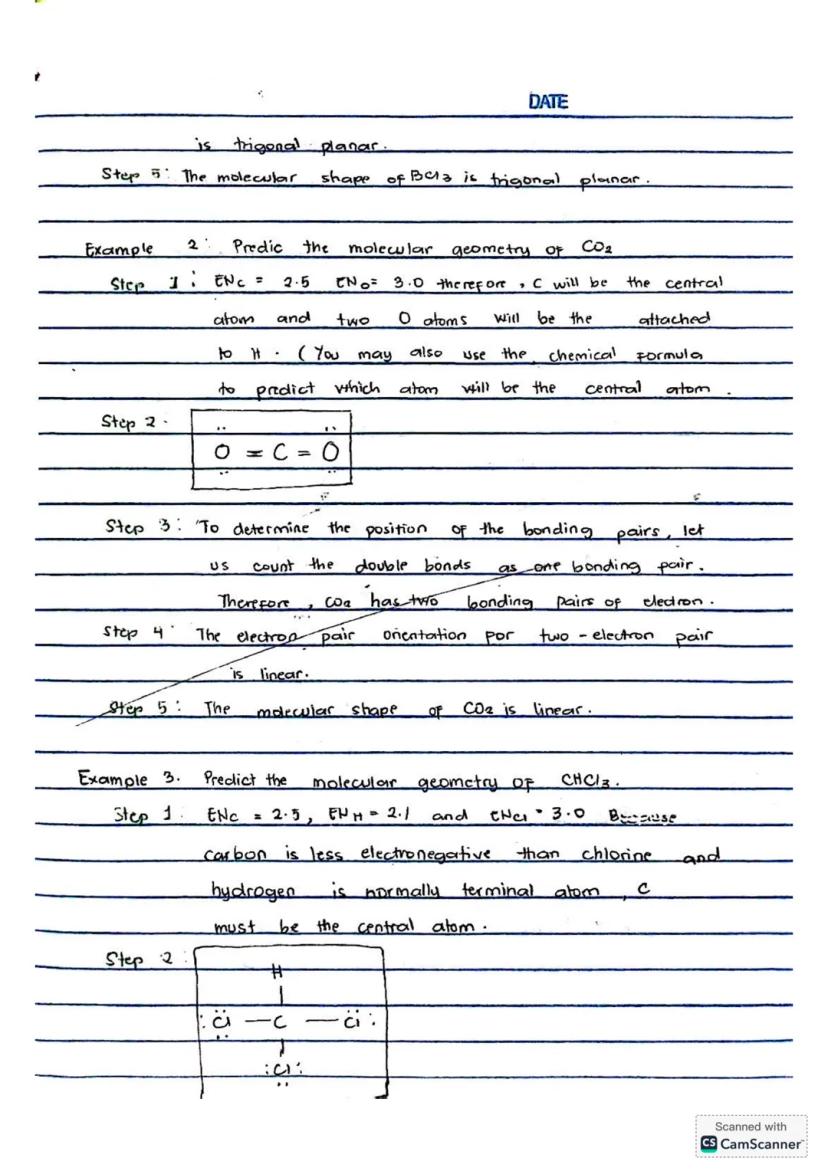 DATE
is trigonal planar.
Step 5: The molecular shape of BCl3 is trigonal planar.
Example 2: Predic the molecular geometry of CO2
Step 1: ENc = 2.5 ENo= 3.0 therefore, C will be the central
atom and two O atoms will be the attached
to H. (You may also use the chemical formula
to predict which atom will be the central atom.
Step 2.
O = C = O
Step 3: To determine the position of the bonding pairs, let
us count the double bonds as one bonding pair.
Therefore, CO2 has two bonding pairs of electron.
Step 4 The electron pair orientation por two-electron pair
is linear.
Step 5: The molecular shape of CO2 is linear.
Example 3. Predict the molecular geometry of CHCl3.
Step 1. ENc = 2.5, ENH = 2.1 and ENCl = 3.0 Because
carbon is less electronegative than chlorine and
hydrogen is normally terminal atom, C
must be the central atom.
Step 2:
H
:Cl — C — Cl:
:Cl:
Scanned with
CS CamScanner